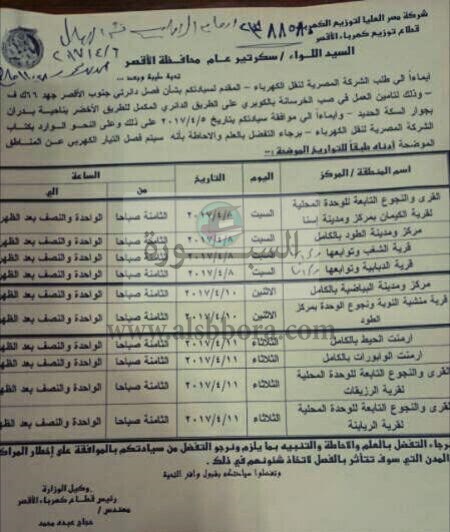 شركة مصر العليا لتوزيع الكهرباء
قطاع توزيع كهرباء الأقصر
٨٨٥٨
السيد اللواء / سكرتير عام محافظة الأقصر
تحية طيبة وبعد ...
إيماءاً الي طلب الشركة المصرية لنقل الكهرباء - المقدم لسيادتكم بشأن فصل دائرتي جنوب الأقصر جهد ٦٦ ك ف
- وذلك لتأمين العمل في صب الخرسانة بالكوبري على الطريق الدائري المكمل للطريق الأخضر بناحية بدران
بجوار السكة الحديد - وإيماءا الي موافقة سيادتكم بتاريخ ٢٠١٧/٤/٥ على ذلك وعلى النحو الوارد بكتاب
الشركة المصرية لنقل الكهرباء - برجاء التفضل بالعلم والاحاطة بأنه سيتم فصل التيار الكهربي عن المناطق
الموضحة أدناه طبقاً للتواريخ الموضحة :-
اسم المنطقة / المركز اليوم التاريخ الساعة
من الي
القرى والنجوع التابعة للوحدة المحلية
لقرية الكيمان بمركز ومدينة إسنا السبت ٢٠١٧/٤/٨ الثامنة صباحا الواحدة والنصف بعد الظهر
مركز ومدينة الطود بالكامل السبت ٢٠١٧/٤/٨ الثامنة صباحا الواحدة والنصف بعد الظهر
قرية الشغب وتوابعها السبت ٢٠١٧/٤/٨ الثامنة صباحا الواحدة والنصف بعد الظهر
قرية الدبابية وتوابعها السبت ٢٠١٧/٤/٨ الثامنة صباحا الواحدة والنصف بعد الظهر
مركز ومدينة البياضية بالكامل الاثنين ٢٠١٧/٤/١٠ الثامنة صباحا الواحدة والنصف بعد الظهر
قرية منشية النوبة ونجوع الوحدة بمركز
الطود الاثنين ٢٠١٧/٤/١٠ الثامنة صباحا الواحدة والنصف بعد الظهر
ارمنت الحيط بالكامل الثلاثاء ٢٠١٧/٤/١١ الثامنة صباحا الواحدة والنصف بعد الظهر
ارمنت الوابورات بالكامل الثلاثاء ٢٠١٧/٤/١١ الثامنة صباحا الواحدة والنصف بعد الظهر
القرى والنجوع التابعة للوحدة المحلية
لقرية الرزيقات الثلاثاء ٢٠١٧/٤/١١ الثامنة صباحا الواحدة والنصف بعد الظهر
القرى والنجوع التابعة للوحدة المحلية
لقرية الرياينة الثلاثاء ٢٠١٧/٤/١١ الثامنة صباحا الواحدة والنصف بعد الظهر
السبورة
www.alsbbora.com
برجاء التفضل بالعلم والاحاطة والتنبيه بما يلزم ونرجو التفضل من سيادتكم بالموافقة علي إخطار المراكز
المدن التي سوف تتأثر بالفصل لاتخاذ شئونهم في ذلك .
وتفضلوا سيادتكم بقبول وافر التحية
وكيل الوزارة
رئيس قطاع كهرباء الأقصر
مهندس /
حجاج عبده محمد